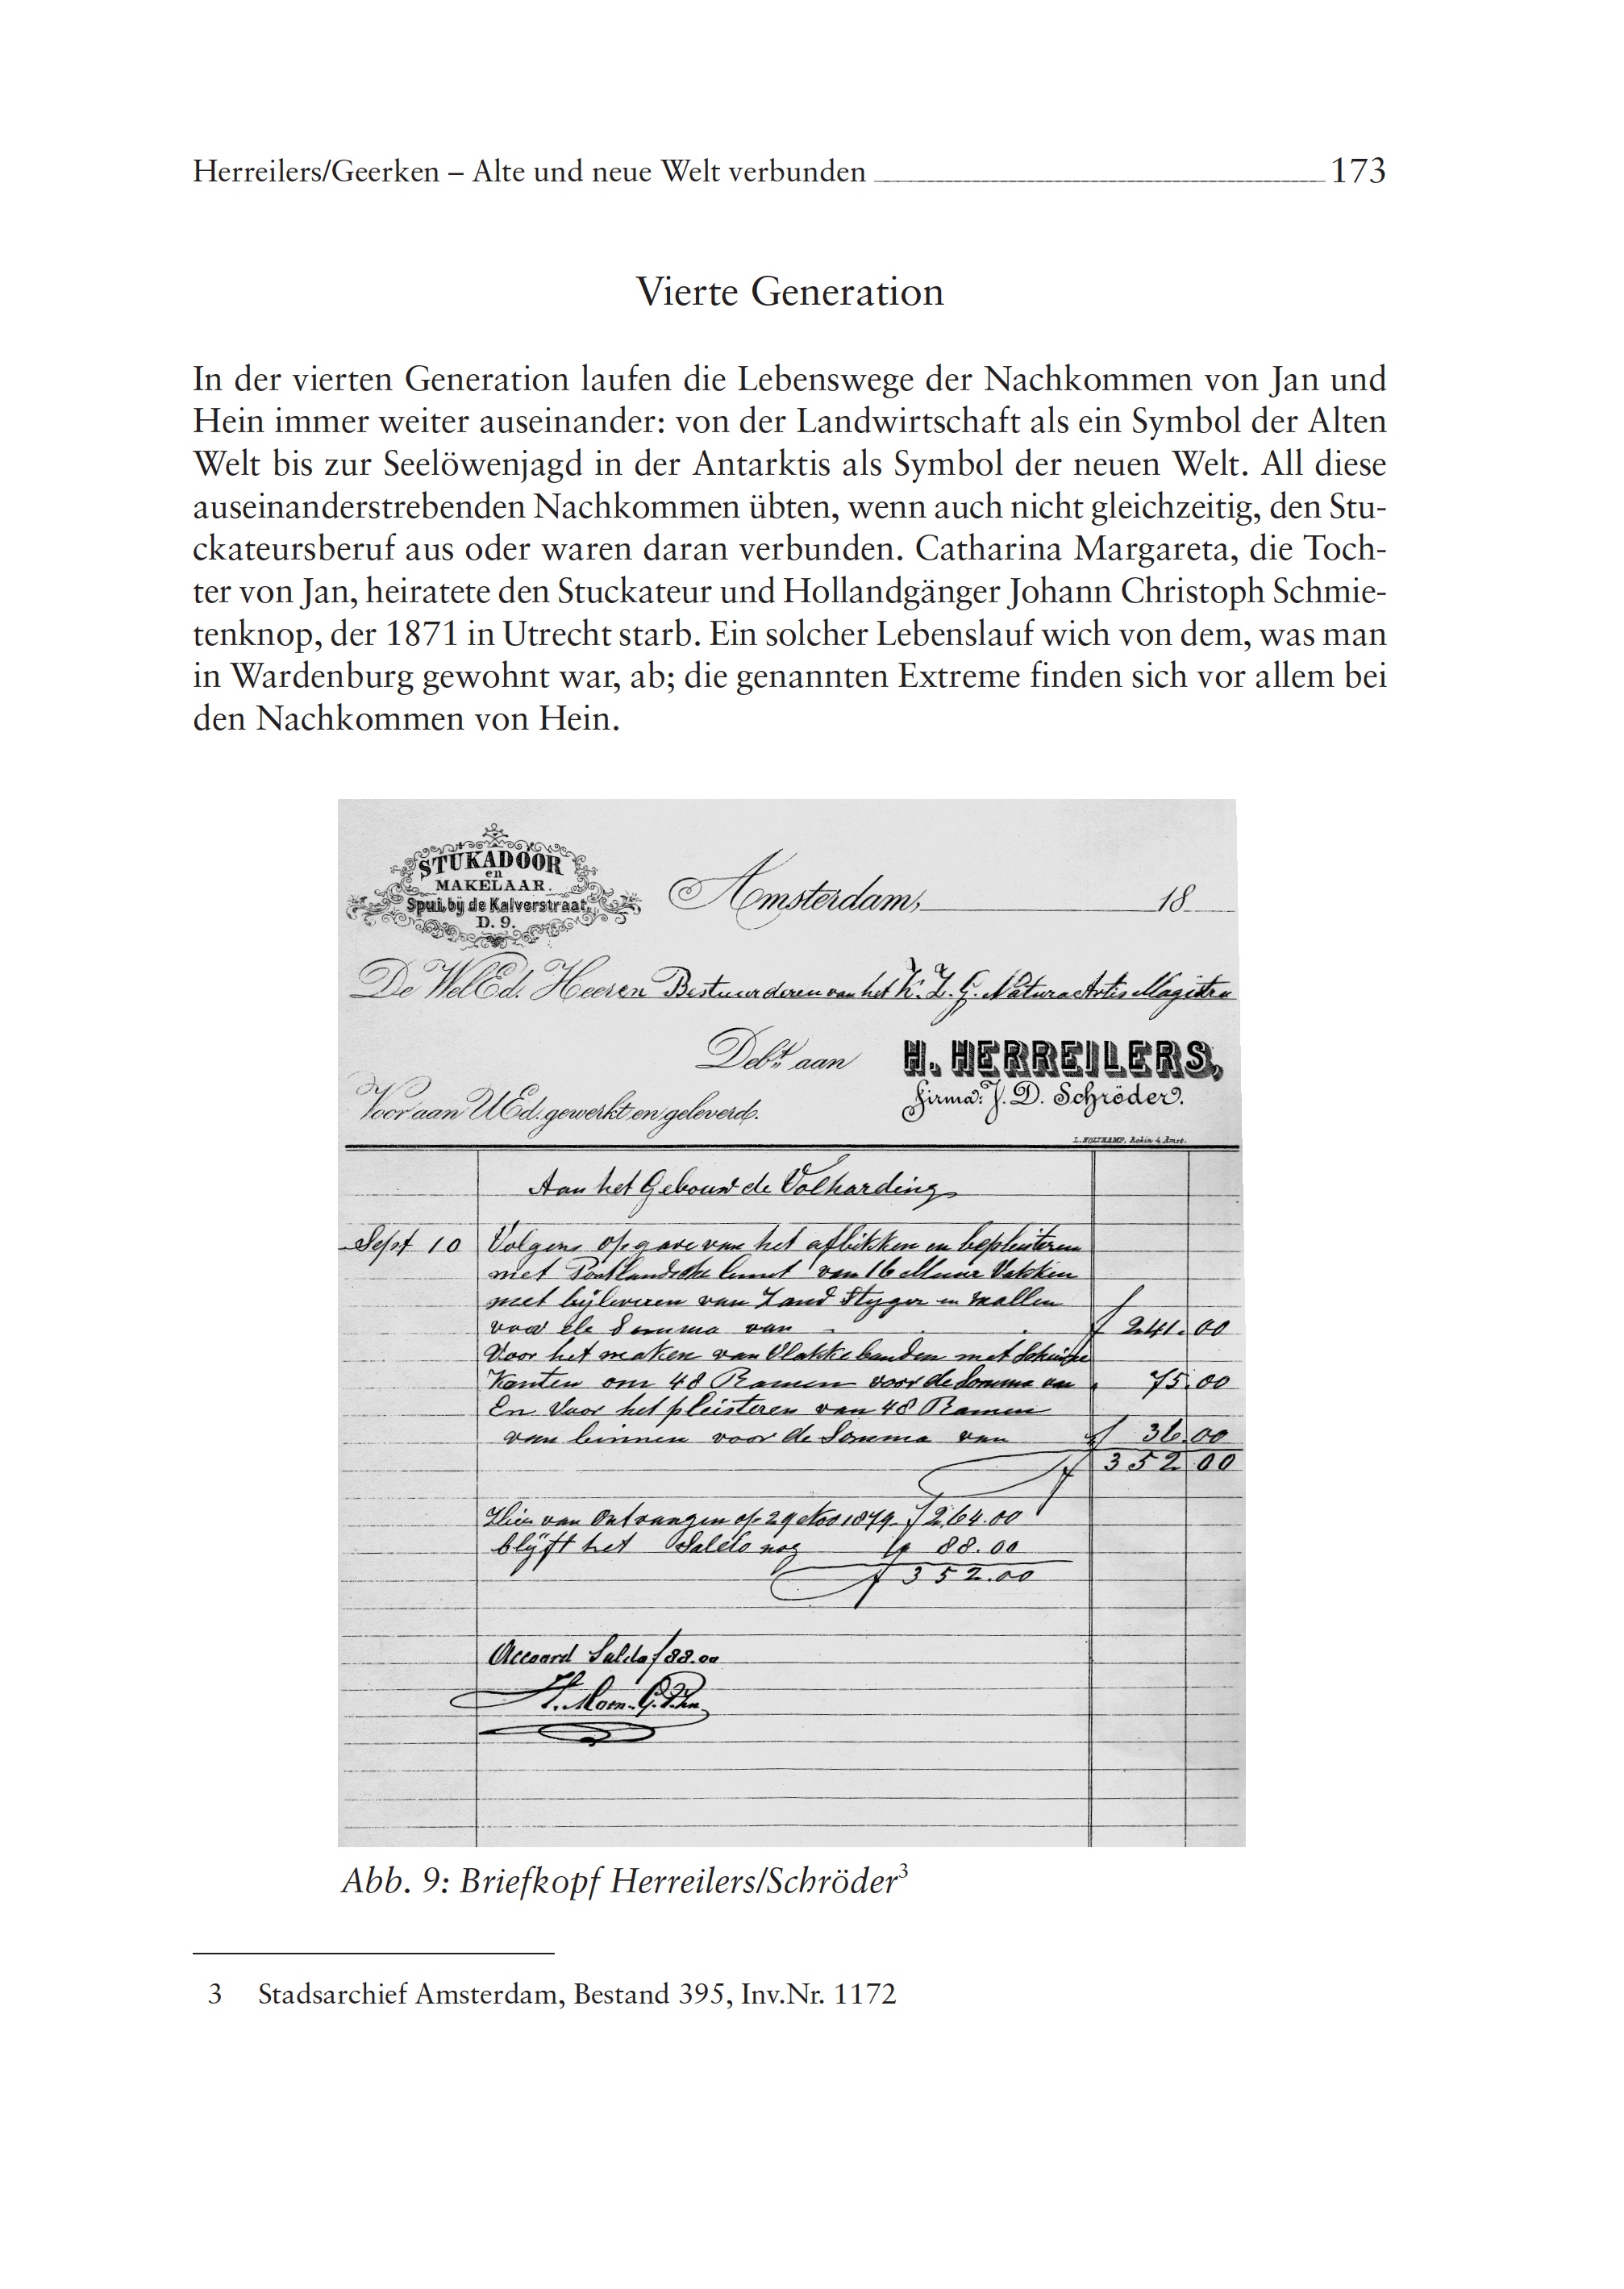 Herreilers/Geerken – Alte und neue Welt verbunden 173
Vierte Generation
In der vierten Generation laufen die Lebenswege der Nachkommen von Jan und
Hein immer weiter auseinander: von der Landwirtschaft als ein Symbol der Alten
Welt bis zur Seelöwenjagd in der Antarktis als Symbol der neuen Welt. All diese
auseinanderstrebenden Nachkommen übten, wenn auch nicht gleichzeitig, den Stu-
ckateursberuf aus oder waren daran verbunden. Catharina Margareta, die Toch-
ter von Jan, heiratete den Stuckateur und Hollandgänger Johann Christoph Schmie-
tenknop, der 1871 in Utrecht starb. Ein solcher Lebenslauf wich von dem, was man
in Wardenburg gewohnt war, ab; die genannten Extreme finden sich vor allem bei
den Nachkommen von Hein.
STUKADOOR
en
MAKELAAR.
Spui, bij de Kalverstraat,
D. 9.
Amsterdam, 18
De WelEd. Heeren Bestuurderen van het K. Z. G. Natura Artis Magistra
Debt. aan H. HERREILERS,
Firma: J. D. Schröder.
Voor aan UEd. gewerkt en geleverd.
L. HOLTKAMP, Rokin 4 Amst.
Aan het Gebouw de Volharding
Sept 10 Volgens opgave van het afbikken en bepleisteren
met Portlandsche Cement van 16 Muur Vakken
met bijleveren van Zand Steyger en mallen
voor de Somma van f 241.00
Voor het maken van Vlakke banden met Schuinse
Kanten om 48 Ramen voor de Somma van 75.00
En Voor het pleisteren van 48 Ramen
van binnen voor de Somma van f 36.00
f 352 00
Hier van Ontvangen op 29 Nov 1879 f 264.00
blijft het Saldo nog f 88.00
f 352.00
Accoord Saldo f 88.00
Abb. 9: Briefkopf Herreilers/Schröder3
3 Stadsarchief Amsterdam, Bestand 395, Inv.Nr. 1172